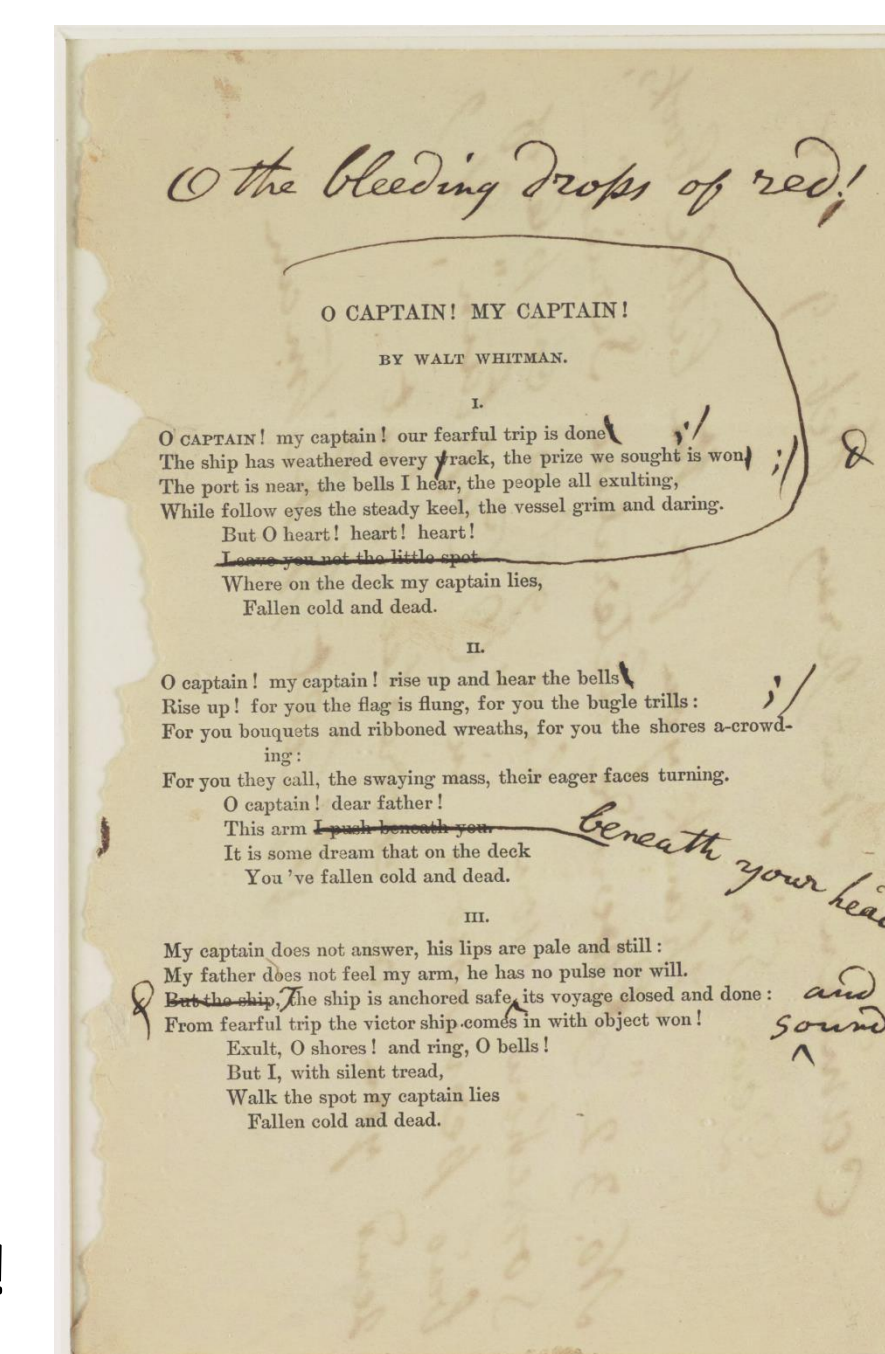 O the bleeding drops of red!
O CAPTAIN! MY CAPTAIN!
BY WALT WHITMAN.
I.
O CAPTAIN! my captain! our fearful trip is done ;/
The ship has weathered every rack, the prize we sought is won ;/
The port is near, the bells I hear, the people all exulting,
While follow eyes the steady keel, the vessel grim and daring.
But O heart! heart! heart!
Leave you not the little spot
Where on the deck my captain lies,
Fallen cold and dead.
II.
O captain! my captain! rise up and hear the bells ;/
Rise up! for you the flag is flung, for you the bugle trills:
For you bouquets and ribboned wreaths, for you the shores a-crowd-
ing:
For you they call, the swaying mass, their eager faces turning.
O captain! dear father!
This arm I push beneath you. beneath your
It is some dream that on the deck
You 've fallen cold and dead.
III.
My captain does not answer, his lips are pale and still:
My father does not feel my arm, he has no pulse nor will.
But the ship, The ship is anchored safe, its voyage closed and done: and
From fearful trip the victor ship comes in with object won! sound
Exult, O shores! and ring, O bells!
But I, with silent tread,
Walk the spot my captain lies
Fallen cold and dead.
!